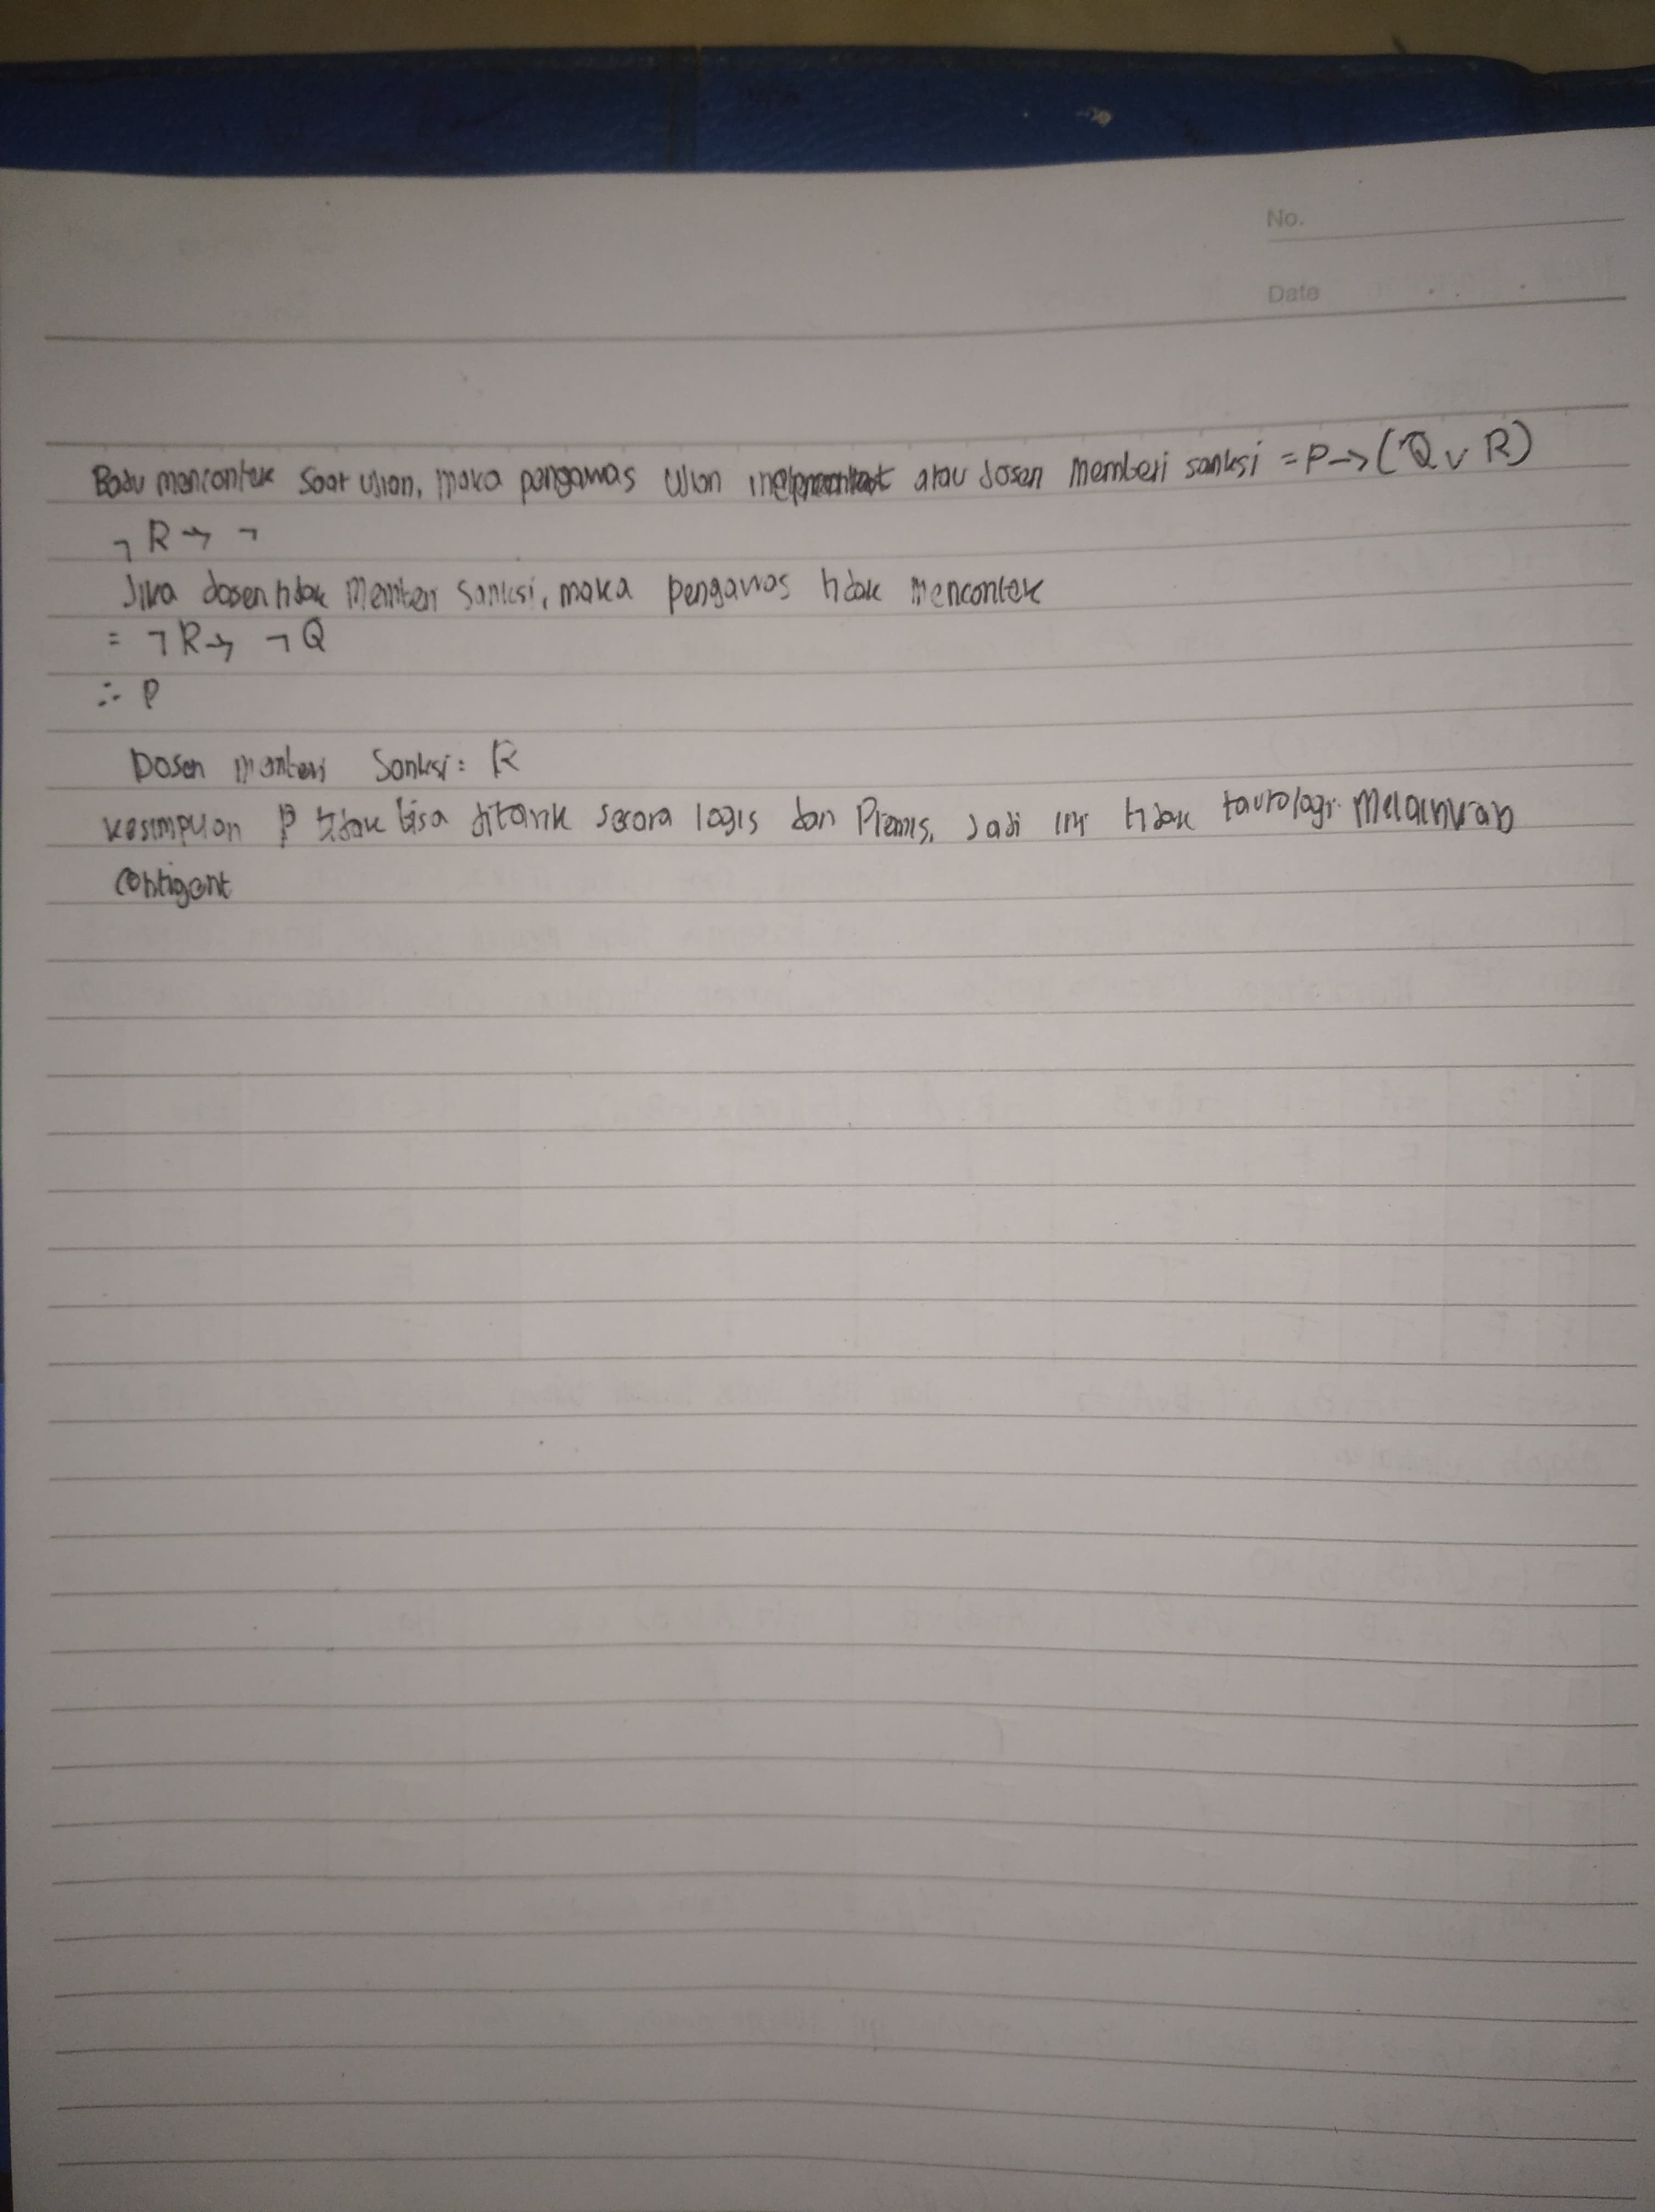 No.
Date
Badu mencontek saat ujian, maka pengawas ujian atau dosen memberi sanksi = P → (Q ∨ R)
¬ R → ¬
Jika dosen tidak memberi sanksi, maka pengawas tidak mencontek
= ¬ R → ¬ Q
∴ P
Dosen memberi Sanksi : R
Kesimpulan P tidak bisa ditarik secara logis dan Premis. Jadi ini tidak tautologi. Melainkan
Contigent